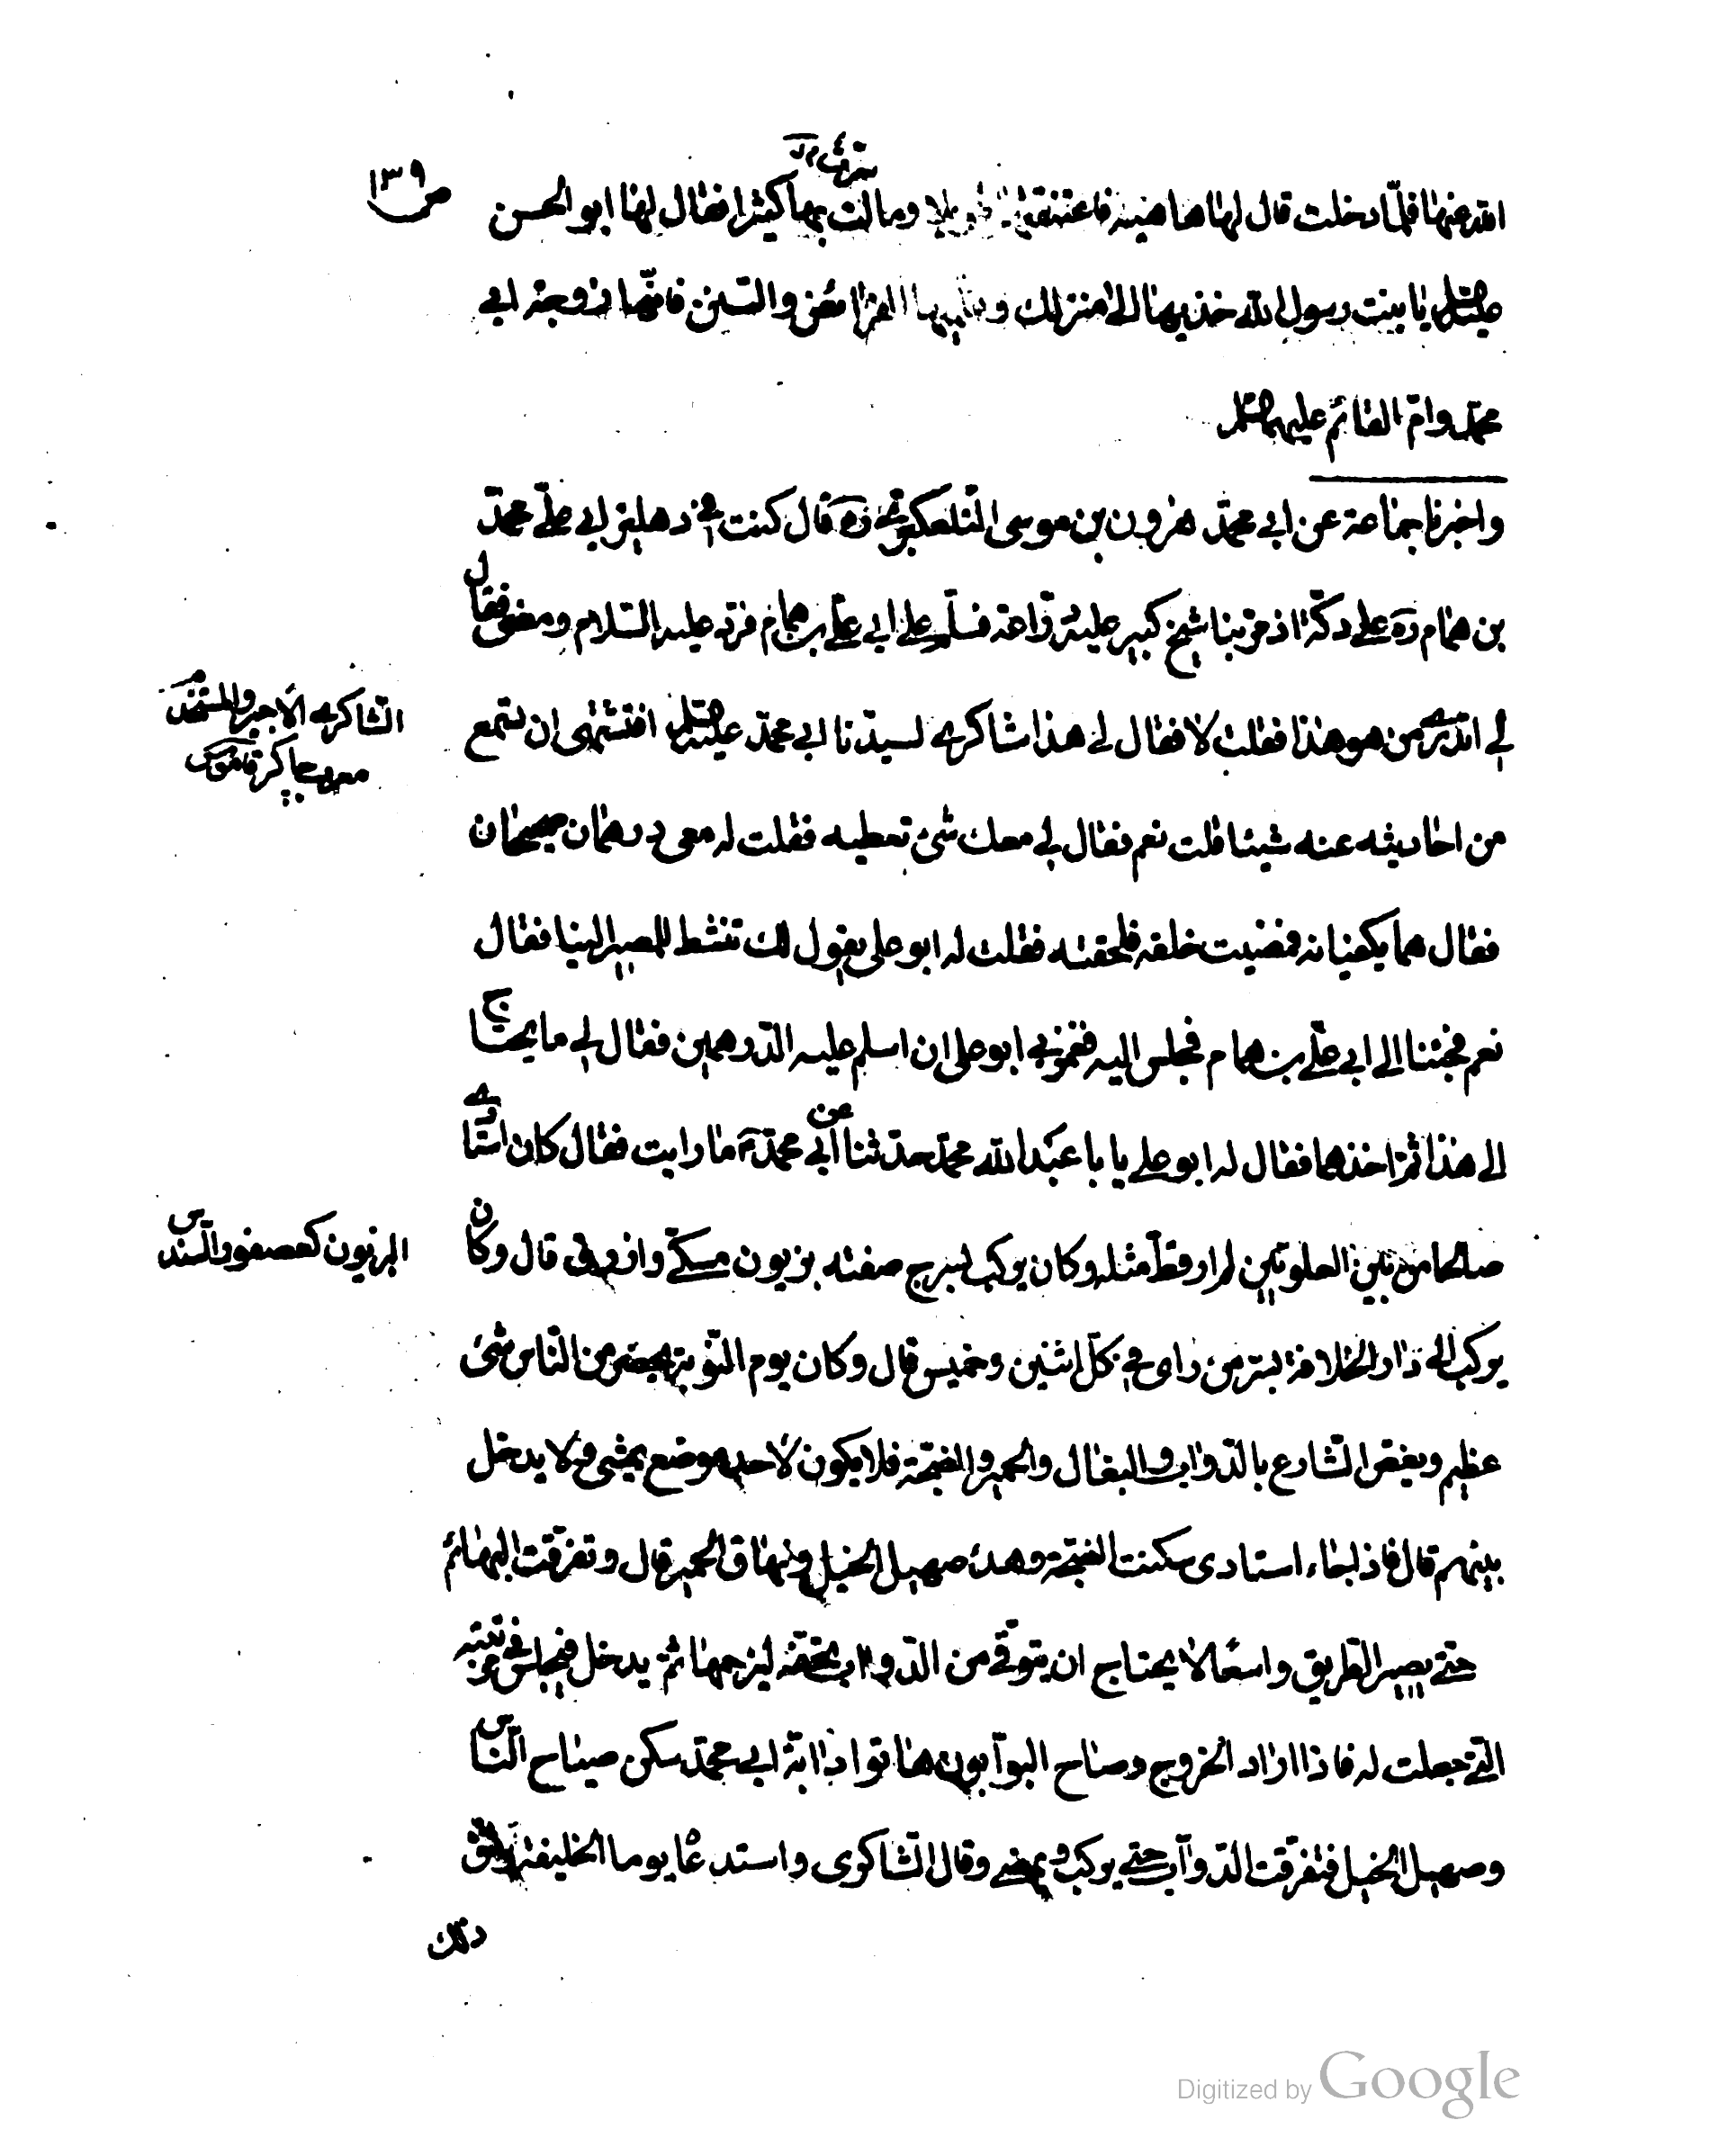 ص ١٣٩
الله عنها فلمّا دخلت قال لها ها هيه فاعتنقتها طويلا ومالت بها كثيرا فقال لها ابو الحسن
عليه السلام يا بنت رسول الله خذيها الى منزلك وعلميها الفرائض والسنن فانّها زوجة ابي
محمّد وامّ القائم عليهما السلام
واخبرنا جماعة عن ابي محمّد هرون بن موسى التلعكبري ره قال كنت في دهليز ابي علي محمّد
بن همام ره على دكّة اذ مرّ بنا شيخ كبير عليه درّاعة فسلّم على ابي علي بن همام فردّ عليه السّلام ومضى فقال
لي اتدري من هو هذا فقلت لا فقال لي هذا شاكري لسيّدنا ابي محمّد عليه السلام افتشتهى ان تسمع
الشاكري الاجير والمستخدم
معرب چاكر قاموس
من احاديثه عنه شيئا قلت نعم فقال لي معك شئ تعطيه فقلت له معى درهمان صحيحان
فقال هما يكفيانه فمضيت خلفه فلحقته فقلت له ابو على يقول لك تنشط للمصير الينا فقال
نعم فجئنا الى ابي علي بن همام فجلس اليه فغمزني ابو على ان اسلم عليه الدّرهمين فقال لي ما يحتاج
الى هذا ثمّ اخذهما فقال له ابو علي يا با عبد الله محمّد حدثنا عن ابي محمّد ما رايت فقال كان استادي
صالحا من بين العلويّين لم ار قطّ مثله وكان يركب بسرج صفته بزيون مسكي وازرق قال وكان
البزيون كعصفور السندس
يركب الى دار الخلافة بسرّ من راى في كلّ اثنين وخميس قال وكان يوم النّوبة يحضر من النّاس شئ
عظيم ويغصّ الشّارع بالدّوابّ والبغال والحمير والضجّة فلا يكون لأحد موضع يمشى ولا يدخل
بينهم قال فاذا جاء استادى سكنت الضجّة وهدء صهيل الخيل ونهاق الحمير قال وتفرّقت البهائم
حتّى يصير الطريق واسعًا لا يحتاج ان يتوقّى من الدّوابّ تحفّه ليزحمها ثمّ يدخل فيجلس في مرتبته
التي جعلت له فاذا اراد الخروج وصاح البوّابون هاتوا دابّة ابي محمّد سكن صياح النّاس
وصهيل الخيل فتفرّقت الدّوابّ حتّى يركب ويمضي وقال الشّاكرى واستدعاه يوما الخليفة وشق
ذلك
Digitized by Google